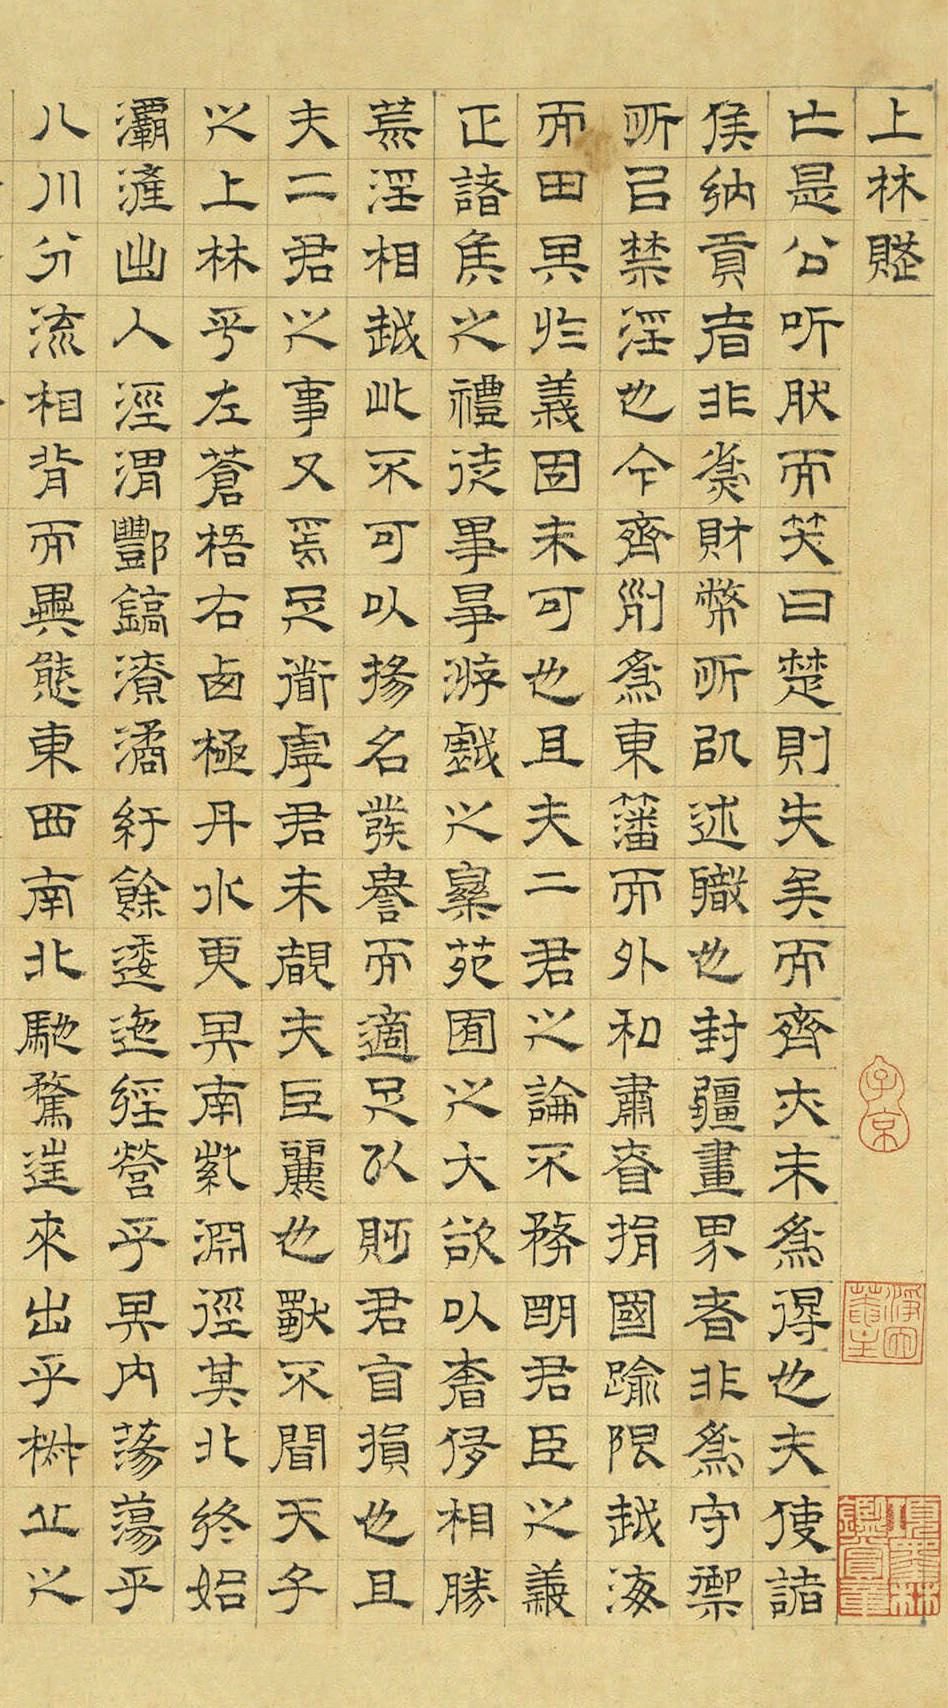 上林賦
亡是公听肰而笑曰楚則失矣而齊亦未為得也夫使諸
侯納貢者非為財幣所以述職也封疆畫界者非為守禦
所以禁淫也今齊列為東藩而外和肅眘捐國踰限越海
而田其於義固未可也且夫二君之論不務明君臣之義
正諸侯之禮徒事爭游戲之樂苑囿之大欲以奢侈相勝
荒淫相越此不可以揚名發譽而適足以貶君自損也且
夫二君之事又焉足道虖君未覩夫巨麗也獨不聞天子
之上林乎左蒼梧右西極丹水更其南紫淵徑其北終始
灞滻出入涇渭酆鎬潦潏紆餘逶迤經營乎其內蕩蕩乎
八川分流相背而異態東西南北馳騖往來出乎椒丘之
子京
項墨林鑑賞章